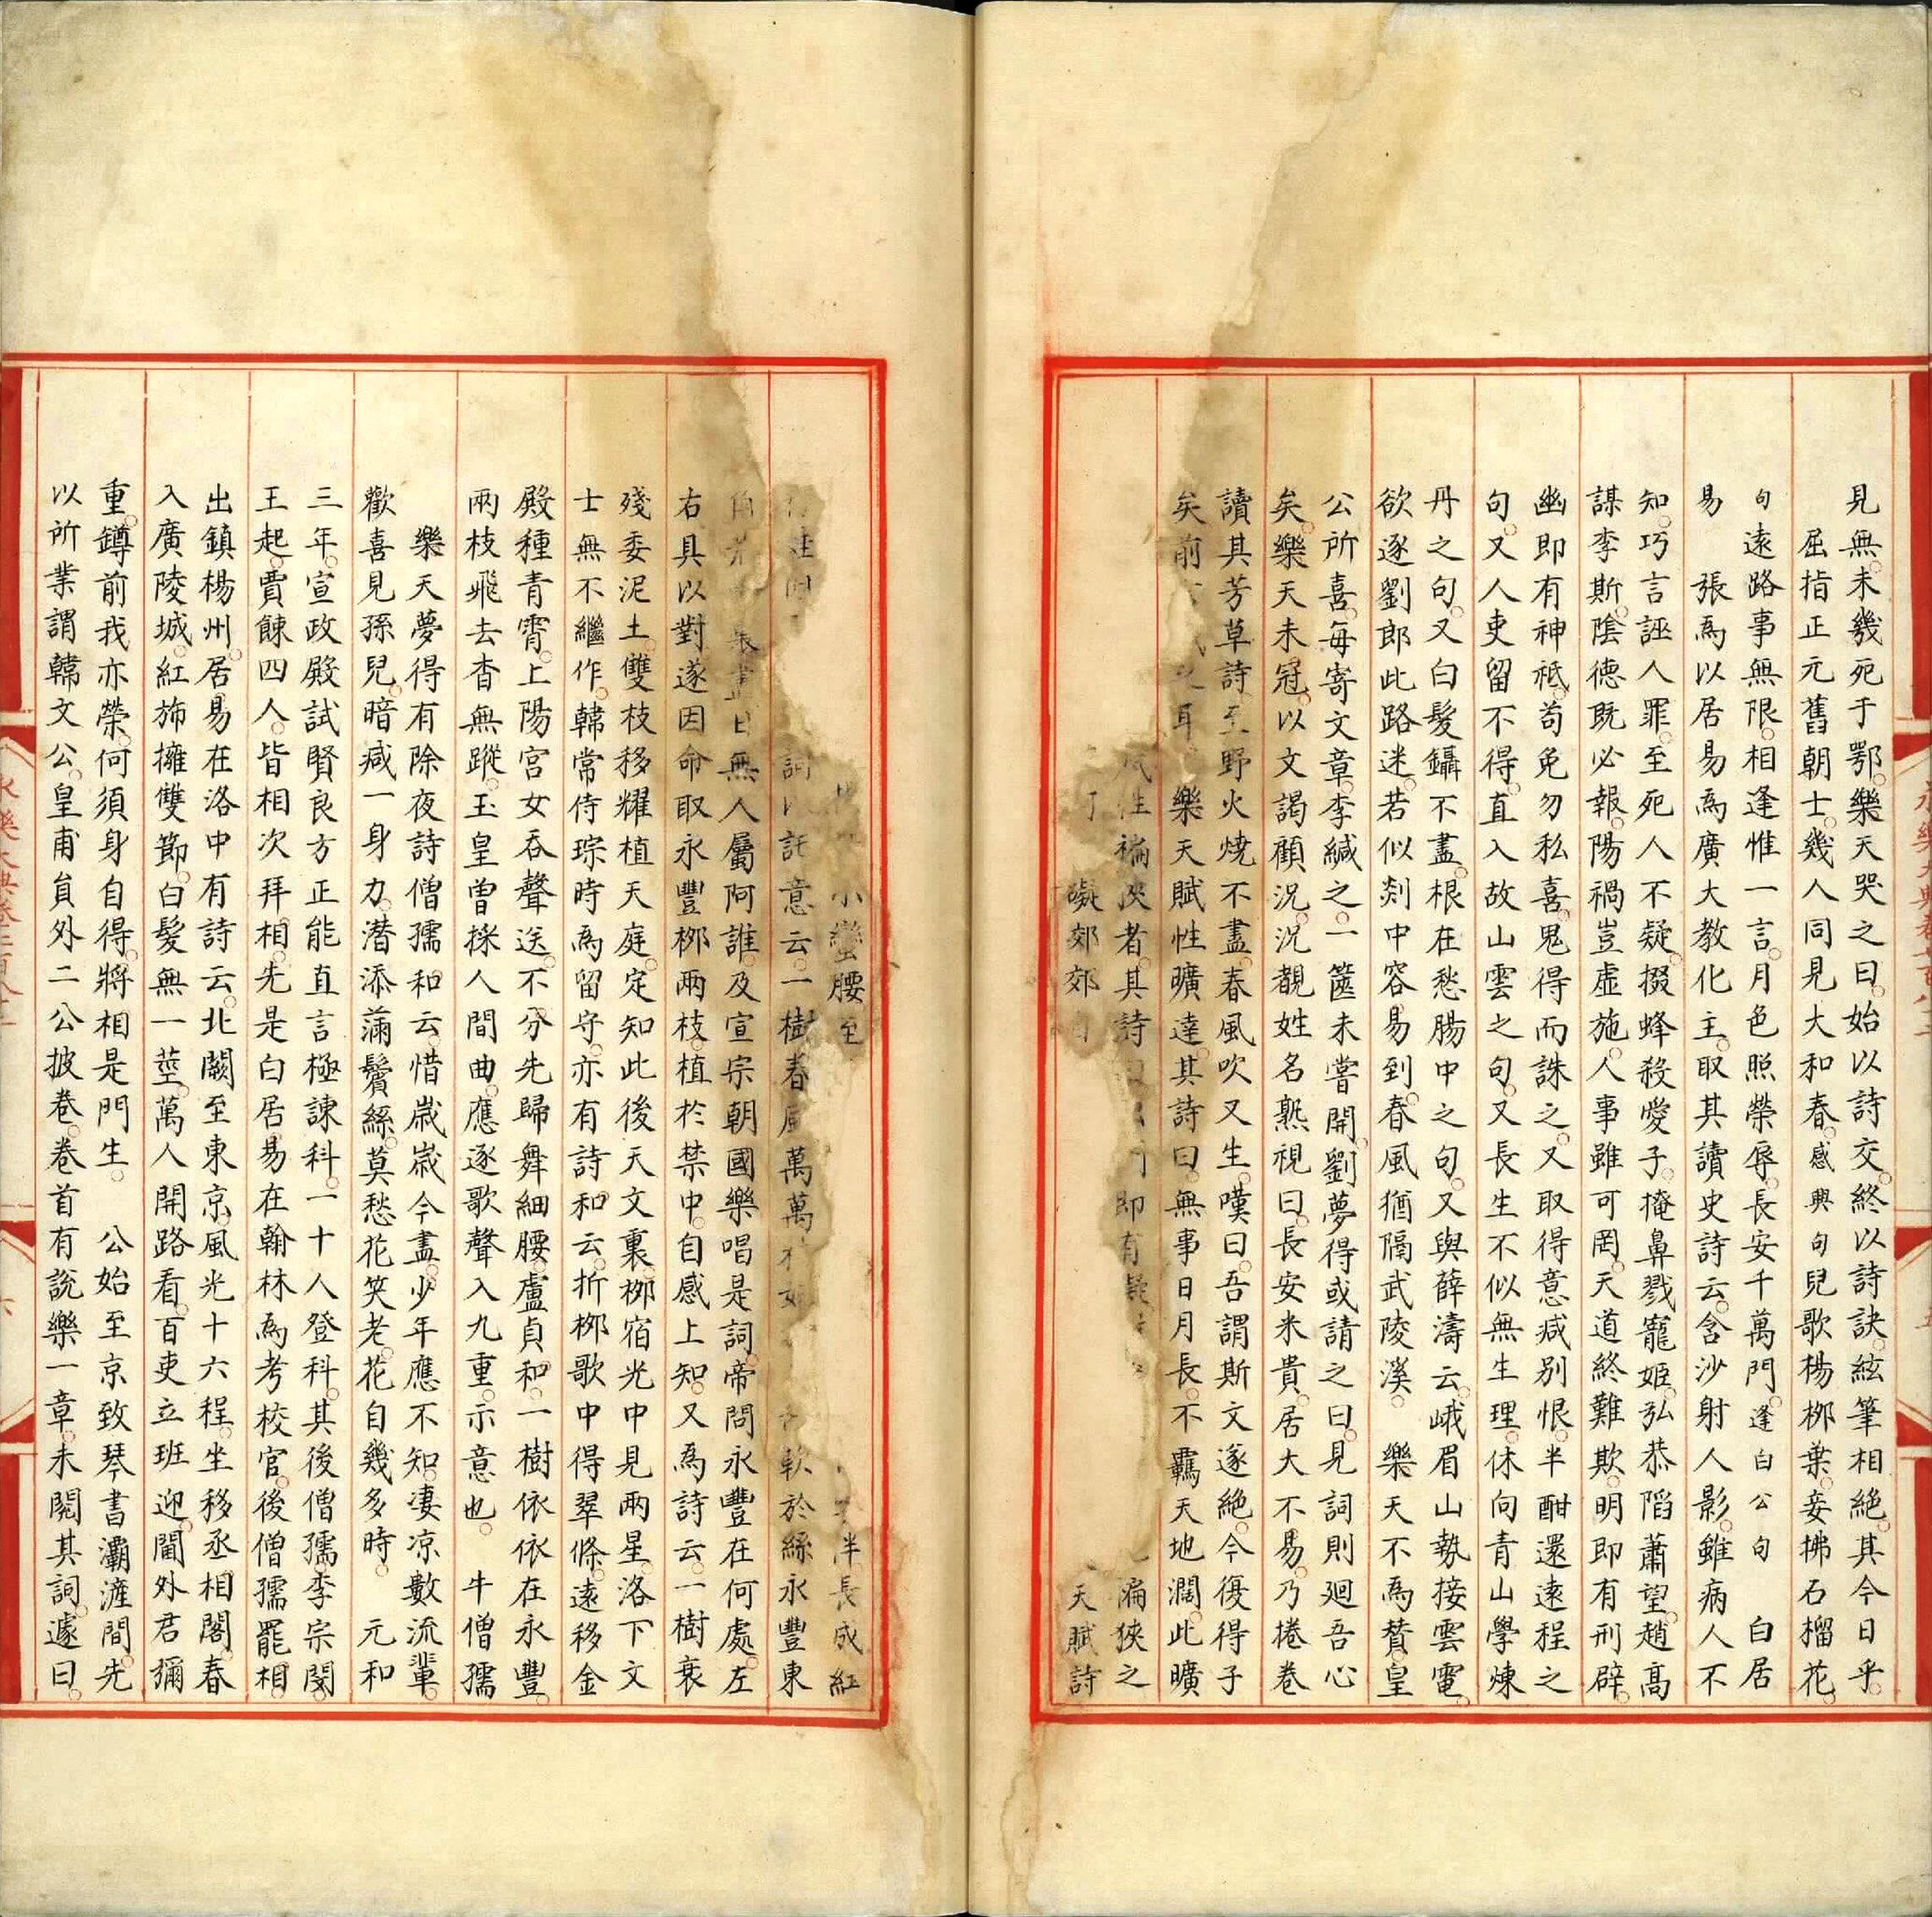 見無未幾死于鄂樂天哭之曰始以詩交終以詩訣絃筆相絕其今日乎
屈指正元舊朝士幾人同見大和春感興句兒歌楊桺葉妾拂石榴花
句遠路事無限相逢惟一言月色照榮辱長安千萬門逢白公句 白居
易 張爲以居易爲廣大教化主取其讀史詩云含沙射人影雖病人不
知巧言誣人罪至死人不疑掇蜂殺愛子掩鼻戮寵姬弘恭陷蕭望趙高
謀李斯陰德既必報陽禍豈虛施人事雖可罔天道終難欺明即有刑辟
幽即有神祗苟免勿私喜鬼得而誅之又取得意减別恨半酣還遠程之
句又人吏留不得直入故山雲之句又長生不似無生理休向青山學煉
丹之句又白髮鑷不盡根在愁腸中之句又與薛濤云峨眉山勢接雲霓
欲逐劉郎此路迷若似剡中容易到春風猶隔武陵溪 樂天不爲贊皇
公所喜每寄文章李緘之一篋未嘗開劉夢得或請之曰見詞則廻吾心
矣樂天未冠以文謁顧況況覩姓名熟視曰長安米貴居大不易乃捲卷
讀其芳草詩至野火燒不盡春風吹又生嘆曰吾謂斯文遂絕今復得子
矣前 之耳 樂天賦性曠達其詩曰無事日月長不羈天地濶此曠
性褊狹者其詩曰 即有礙 褊狹之
礙郊郊 天賦詩
小蠻腰至 半長成紅
詞以託意云一樹春風萬萬枝 軟於絲永豐東
角 日無人屬阿誰及宣宗朝國樂唱是詞帝問永豐在何處左
右具以對遂因命取永豐桺兩枝植於禁中自感上知又爲詩云一樹衰
殘委泥土雙枝移耀植天庭定知此後天文裏桺宿光中見兩星洛下文
士無不繼作韓常侍琮時爲留守亦有詩和云折桺歌中得翠條遠移金
殿種青霄上陽宮女吞聲送不分先歸舞細腰盧貞和一樹依依在永豐
兩枝飛去杳無蹤玉皇曾採人間曲應逐歌聲入九重示意也 牛僧孺
樂天夢得有除夜詩僧孺和云惜嵗嵗今盡少年應不知凄凉數流輩
歡喜見孫兒暗减一身力潛添滿鬢絲莫愁花笑老花自幾多時 元和
三年宣政殿試賢良方正能直言極諫科一十人登科其後僧孺李宗閔
王起賈餗四人皆相次拜相先是白居易在翰林爲考校官後僧孺罷相
出鎮楊州居易在洛中有詩云北闕至東京風光十六程坐移丞相閣春
入廣陵城紅斾擁雙節白髮無一莖萬人開路看百吏立班迎閫外君彌
重鐏前我亦榮何須身自得將相是門生 公始至京致琴書灞滻間先
以所業謂韓文公皇甫員外二公披卷卷首有說樂一章未閱其詞遽曰